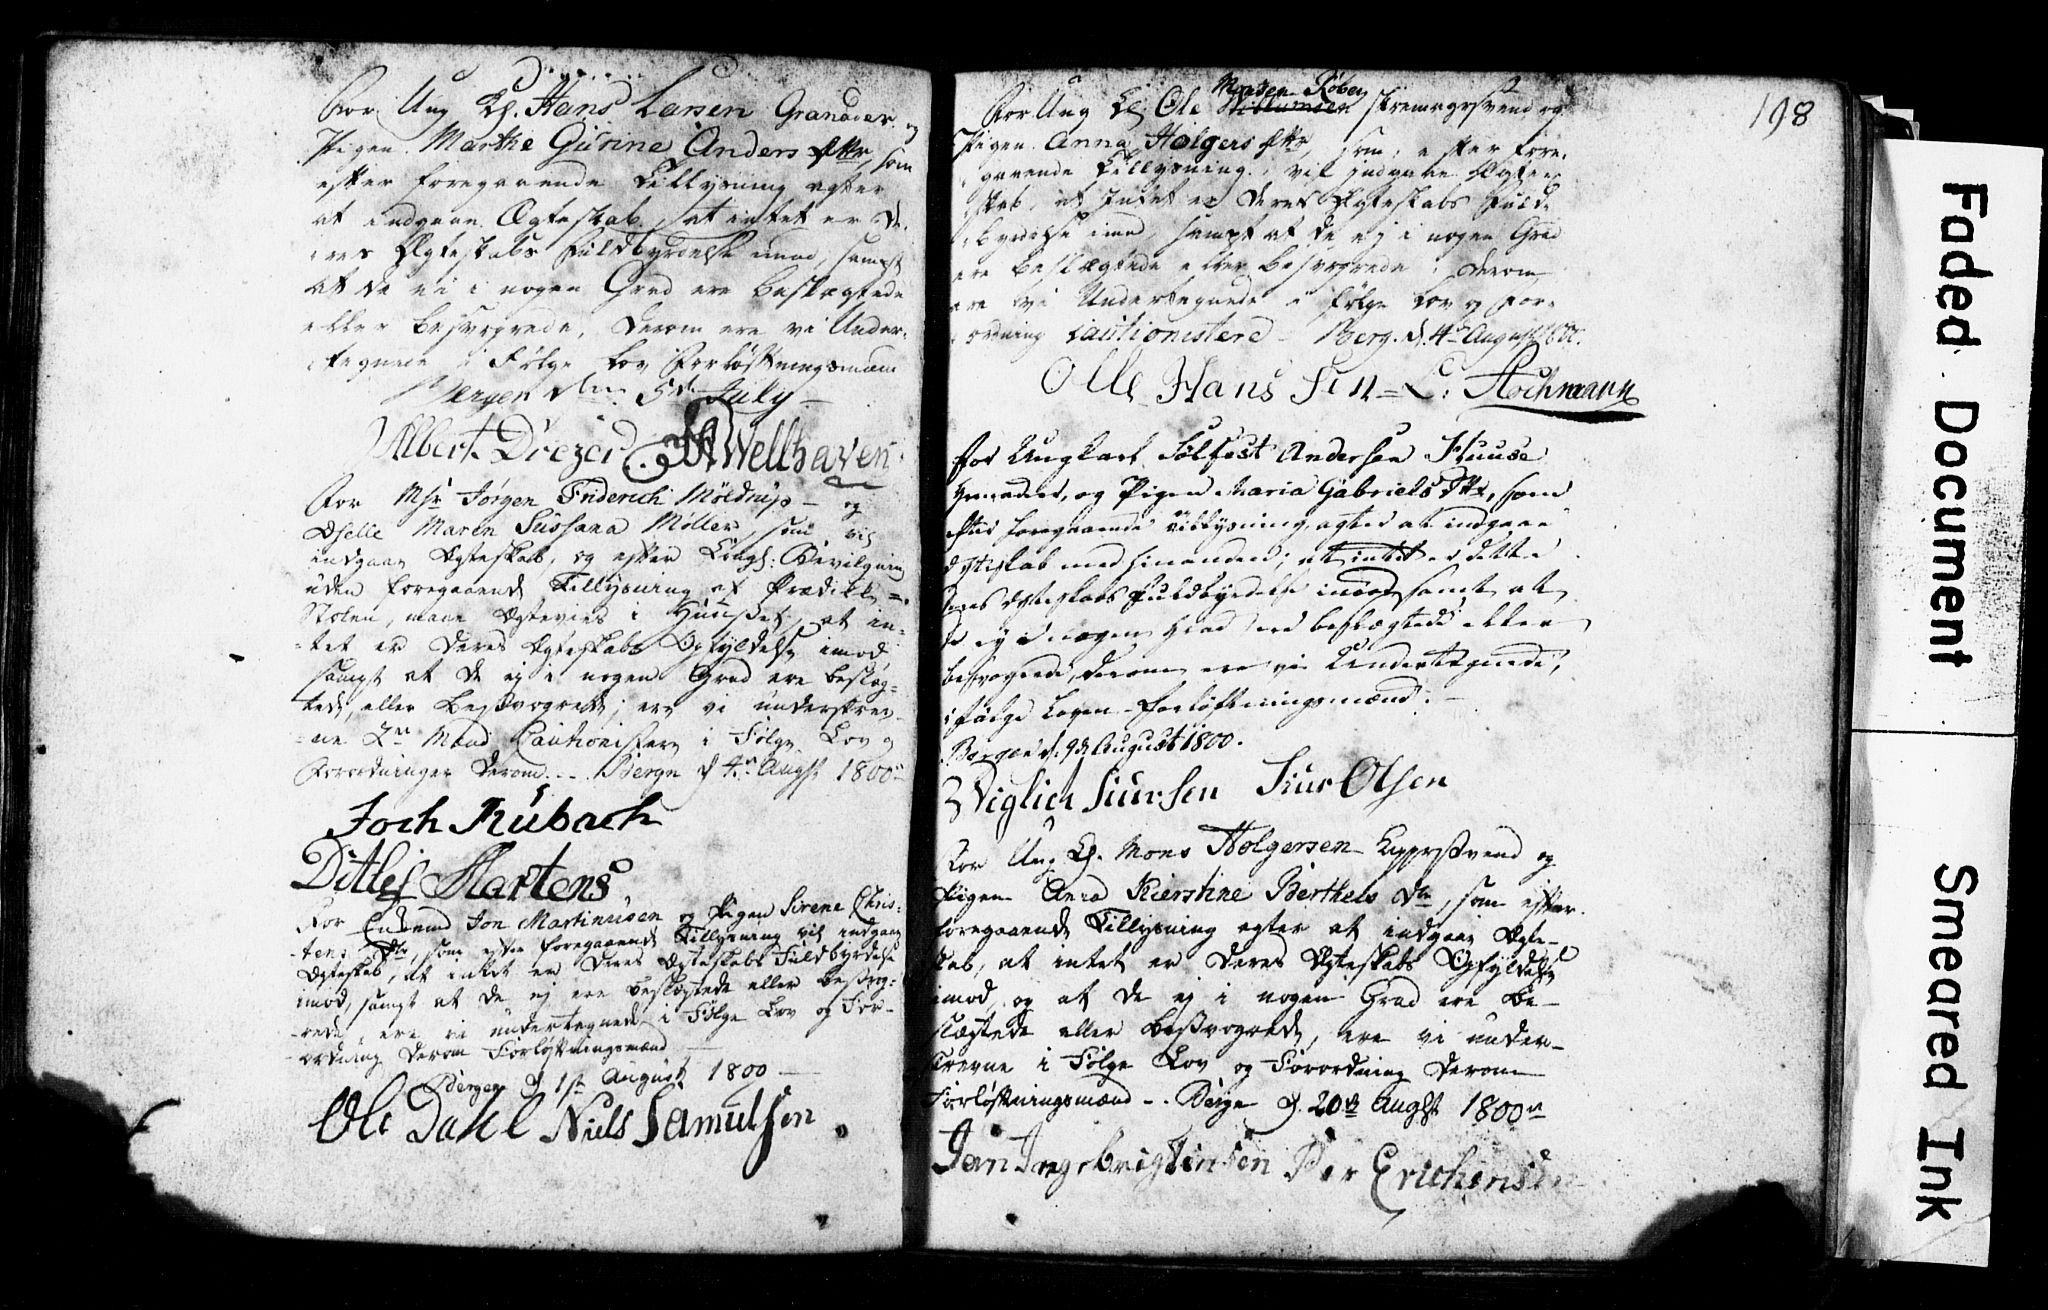 For Ung K. Hans Larsen Granader og
Pigen Marthe Gurine Anders Dttr, som
efter foregaaende Tillysning agter
at indgaae Ægteskab, at intet er De-
res Ægteskabs Fuldbyrdelse imod, sampt
at de ei i nogen Grad ere beslægtede
eller besvogrede, derom ere vi Under-
tegnede i Følge Lov Forløftningsmænd
Bergen den 5te July
Albert Drezer Wellhaven
For Msr Jørgen Friderich Möldrup – og
Mselle Maren Sussana Møller, som vil
indgaae Ægteskab, og efter Kongl: Bevilgning
uden foregaaende Tillysning af Prædike-
Stolen, maae Ægtevies i Huuset, at in-
tet er Deres Ægteskabs Opfyldelse imod
sampt at De ej i nogen Grad ere beslæg-
tede, eller Besvogrede; ere vi underskrev-
ne 2de Mænd Cautionister i Følge Lov og
Forordninger derom... Bergn d 4de Augst 1800
Joch Rübach
Ditlef Martens
For Enkemd Jon Martinusen og Pigen Sirene Chris-
tens Dtr, som efter foregaaende Tillysning vil indgaae
Ægteskab, at intet er Deres Ægteskabs Fuldbyrdelse
imod, sampt at De ej ere beslægtede eller besvog-
rede, ere vi undertegnede i Følge Lov og For-
ordning derom Forløftningsmænd
Bergen d 1ste August 1800
Ole Dahl Niels Samulsen
198
Monsen Røberg
For Ung K Ole Willumsen skræmersvend og
Pigen Anna Holgers dttr, som, efter fore-
gaaende Tillysning, vil indgaae Ægte-
skab, at Intet er Deres Ægteskabs Fuld-
byrdelse imod, sampt at De ej i nogen Grad
ere beslægtede eller besvogrede; derom
ere vi Undertegnede i følge Lov og For-
ordning Cautionistere – Berg. d. 4de August 1800.
Olle Hans Sen = L: Hochmann
For Ungkarl Sølfest Andersen Huuse
Grenadeer, og Pigen Maria Gabriels Dttr, som
efter foregaaende Tillysning, agter at indgaae
Ægteskab med hinanden; at intet er dette
Deres Ægteskabs Fuldbyrdelse imod, samt at
de ej i nogen Grad ere beslægtede eller
besvogrede, derom ere vi Undertegnede,
i følge Loven Forløftningsmænd. –
Bergen d. 9de August 1800.
Wiglich Siursen Siur Olsen
For Ung K. Mons Holgersen Kypersvend og
Pigen Anna Kierstine Berthels Dtr, som efter
foregaaende Tillysning agter at indgaae Ægte-
skab, at intet er Deres Ægteskabs Opfyldelse
imod, og at De ej i nogen Grad ere Be-
slægtede eller Besvogrede, ere vi under-
skrevne i Følge Lov og Forordning derom
Forløftningsmænd -. Berge d. 20de Augst 1800
Jan Ingebrigtensen Per Erichensen
Faded Document Smeared Ink